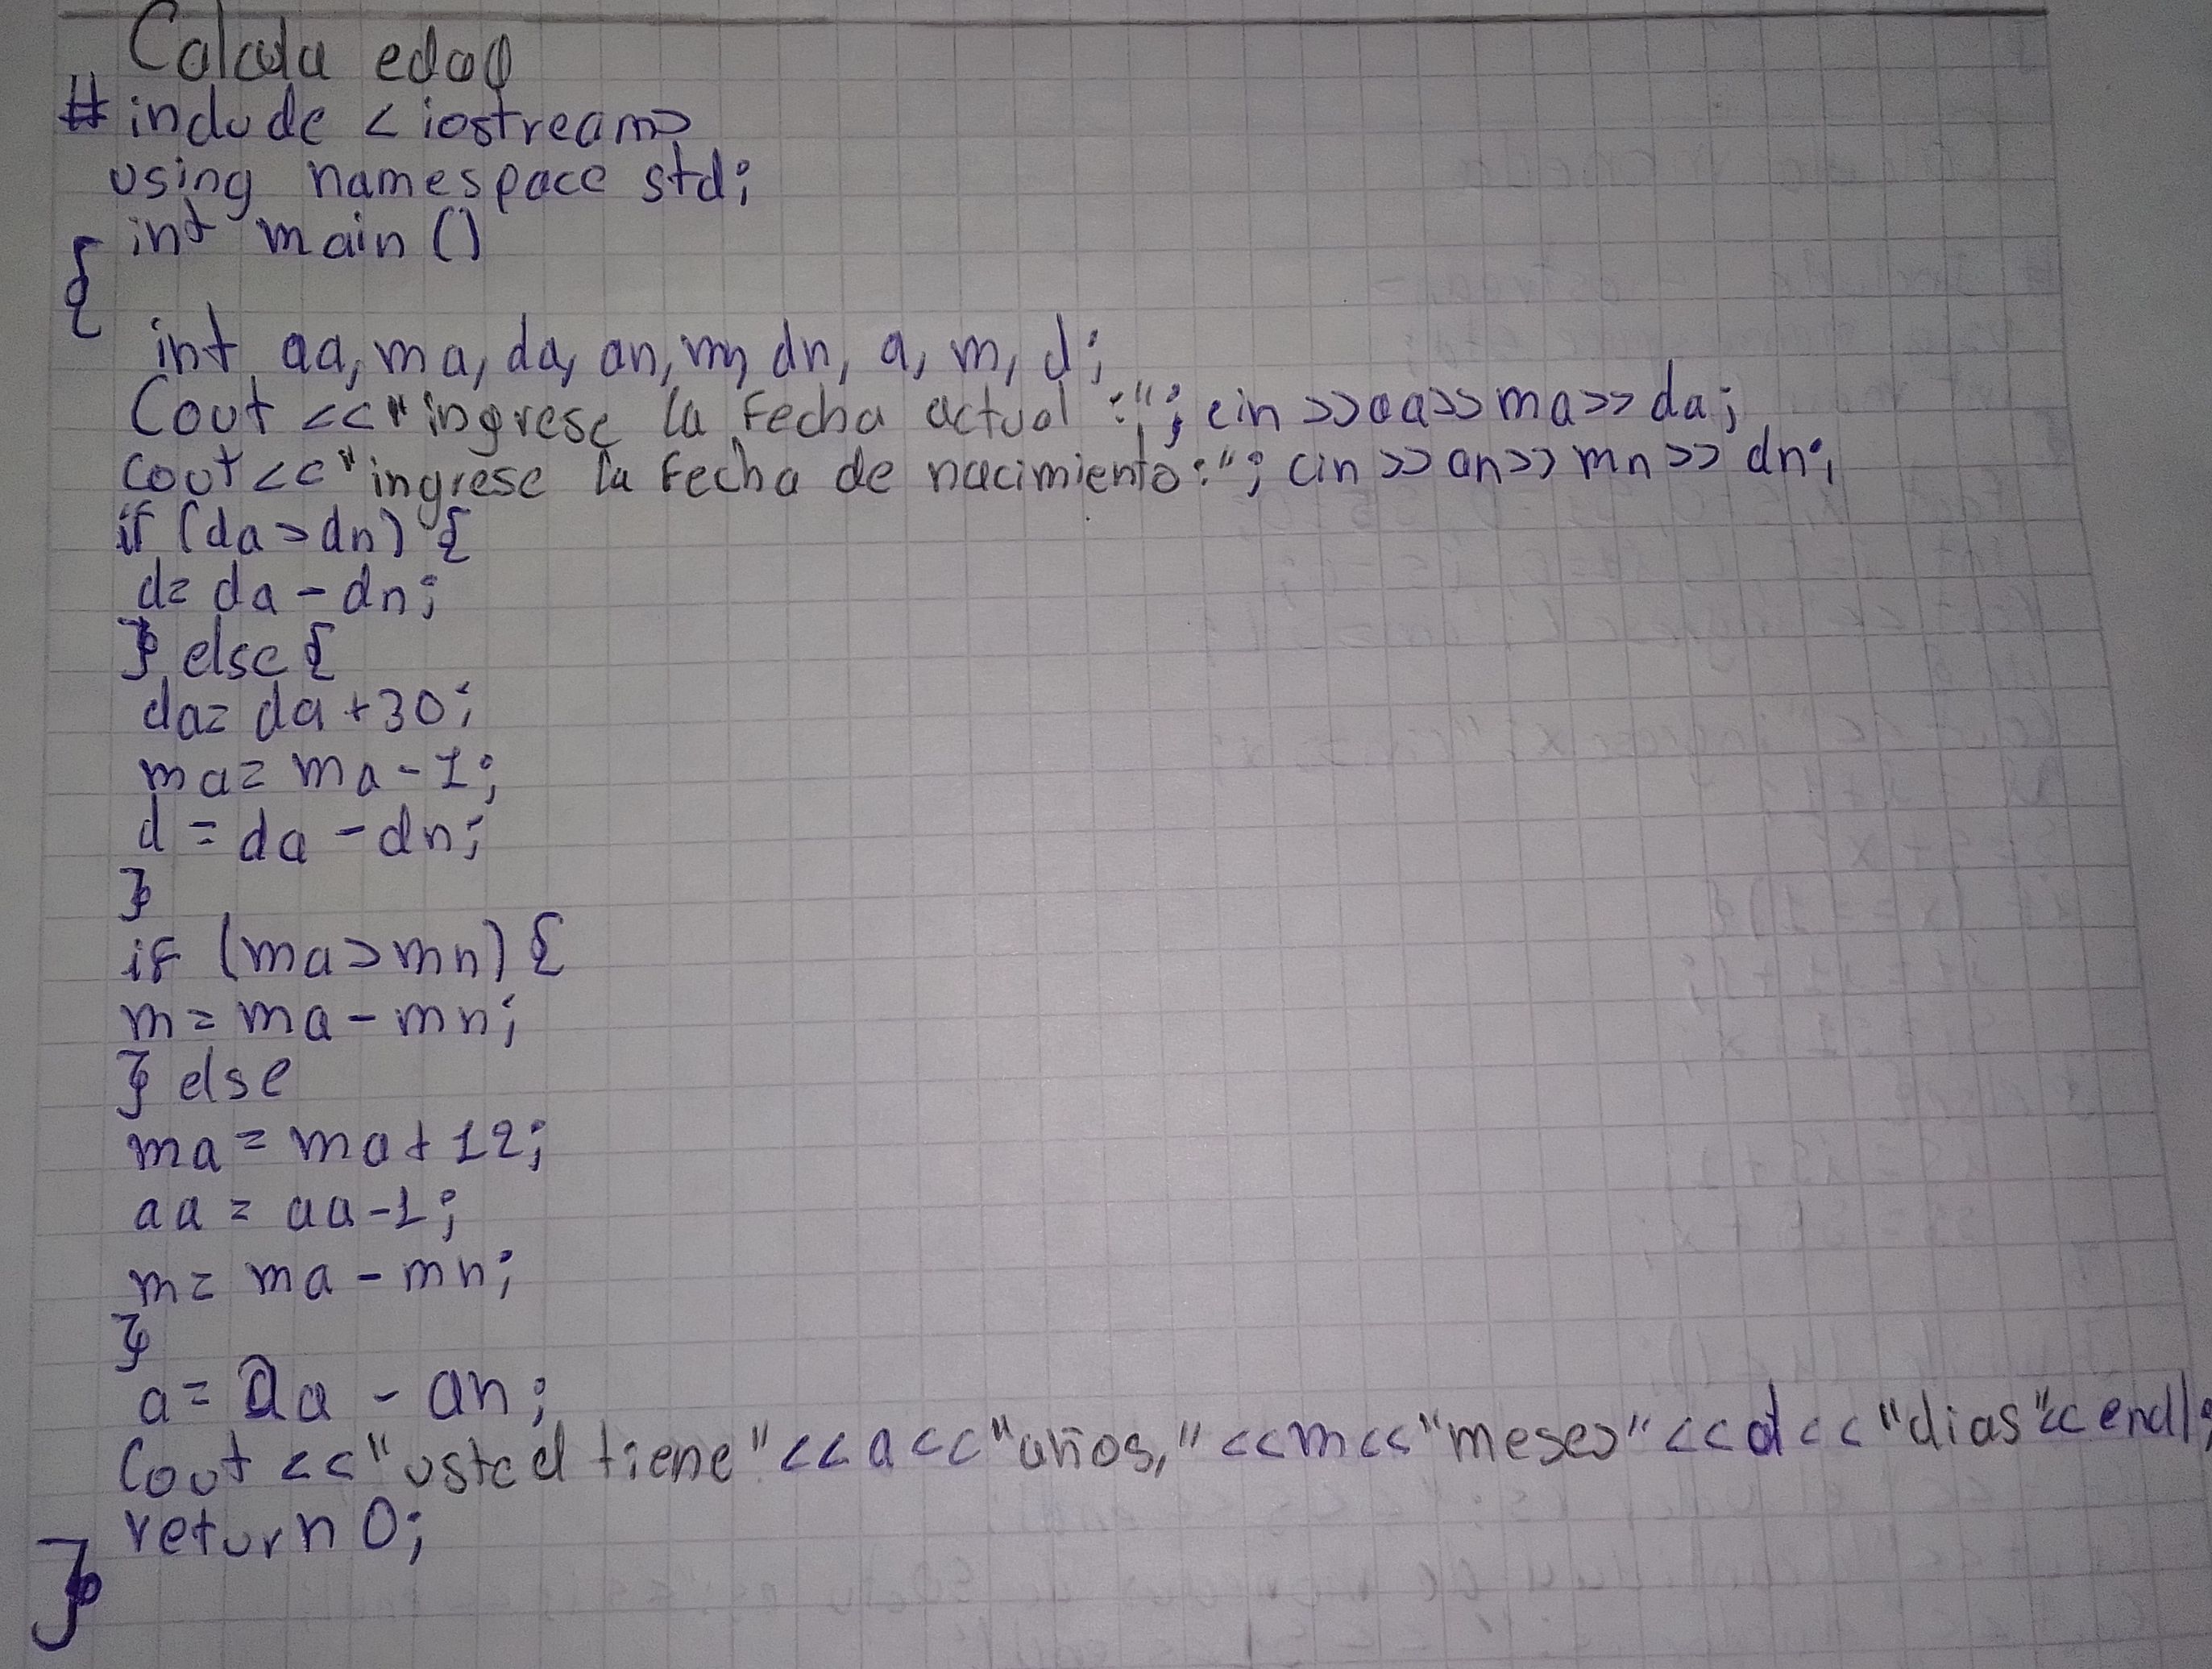 Calcula edad
#include <iostream>
using namespace std;
int main ()
{
int aa, ma, da, an, mn, dn, a, m, d;
Cout <<"ingrese la Fecha actual :"; cin >>aa>>ma>> da;
Cout<<"ingrese la Fecha de nacimiento:"; cin >>an>> mn>> dn;
if (da>dn) {
d= da - dn;
} else {
da= da +30;
ma= ma -1;
d = da - dn;
}
if (ma>mn) {
m= ma - mn;
} else
ma = ma + 12;
aa = aa -1;
m= ma - mn;
}
a= aa - an;
Cout <<"usted tiene"<<a<<"años,"<<m<<"meses"<<d<<"dias"<<endl;
return 0;
}